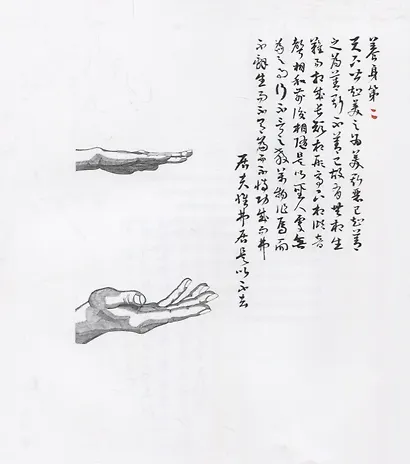 養身第二
天下皆知美之為美斯惡已皆知善
之為善斯不善已故有無相生
難易相成長短相形高下相傾音
聲相和前後相隨是以聖人處無
為之事行不言之教萬物作焉而
不辭生而不有為而不恃功成而弗
居夫惟弗居是以不去